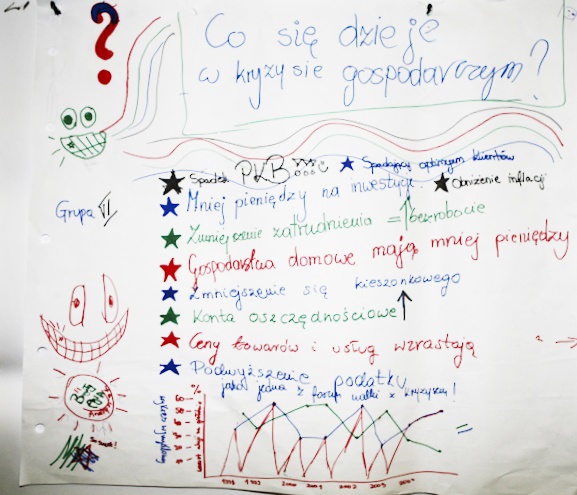 ?
Co się dzieje
w kryzysie gospodarczym?
Spadek PKB
Spadający optymizm klientów
Obniżenie inflacji
Grupa VI
Mniej pieniędzy na inwestycje
Zmniejszenie zatrudnienia = ↑ bezrobocie
Gospodarstwa domowe mają mniej pieniędzy
Zmniejszenie się kieszonkowego
Konta oszczędnościowe ↑
Ceny towarów i usług wzrastają
Podwyższenie podatku
jako jedna z form walki z kryzysem!
%
2000 2001 2002 2003